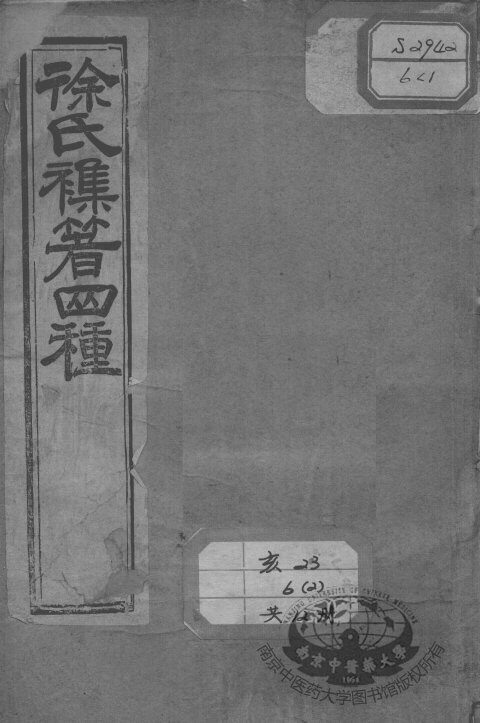 徐氏襍著四種
S2942
6<1
亥 23
6(2)
共12册
NANJING UNIVERSITY OF CHINESE MEDICINE
南京中醫藥大學
1954
南京中医药大学图书馆版权所有